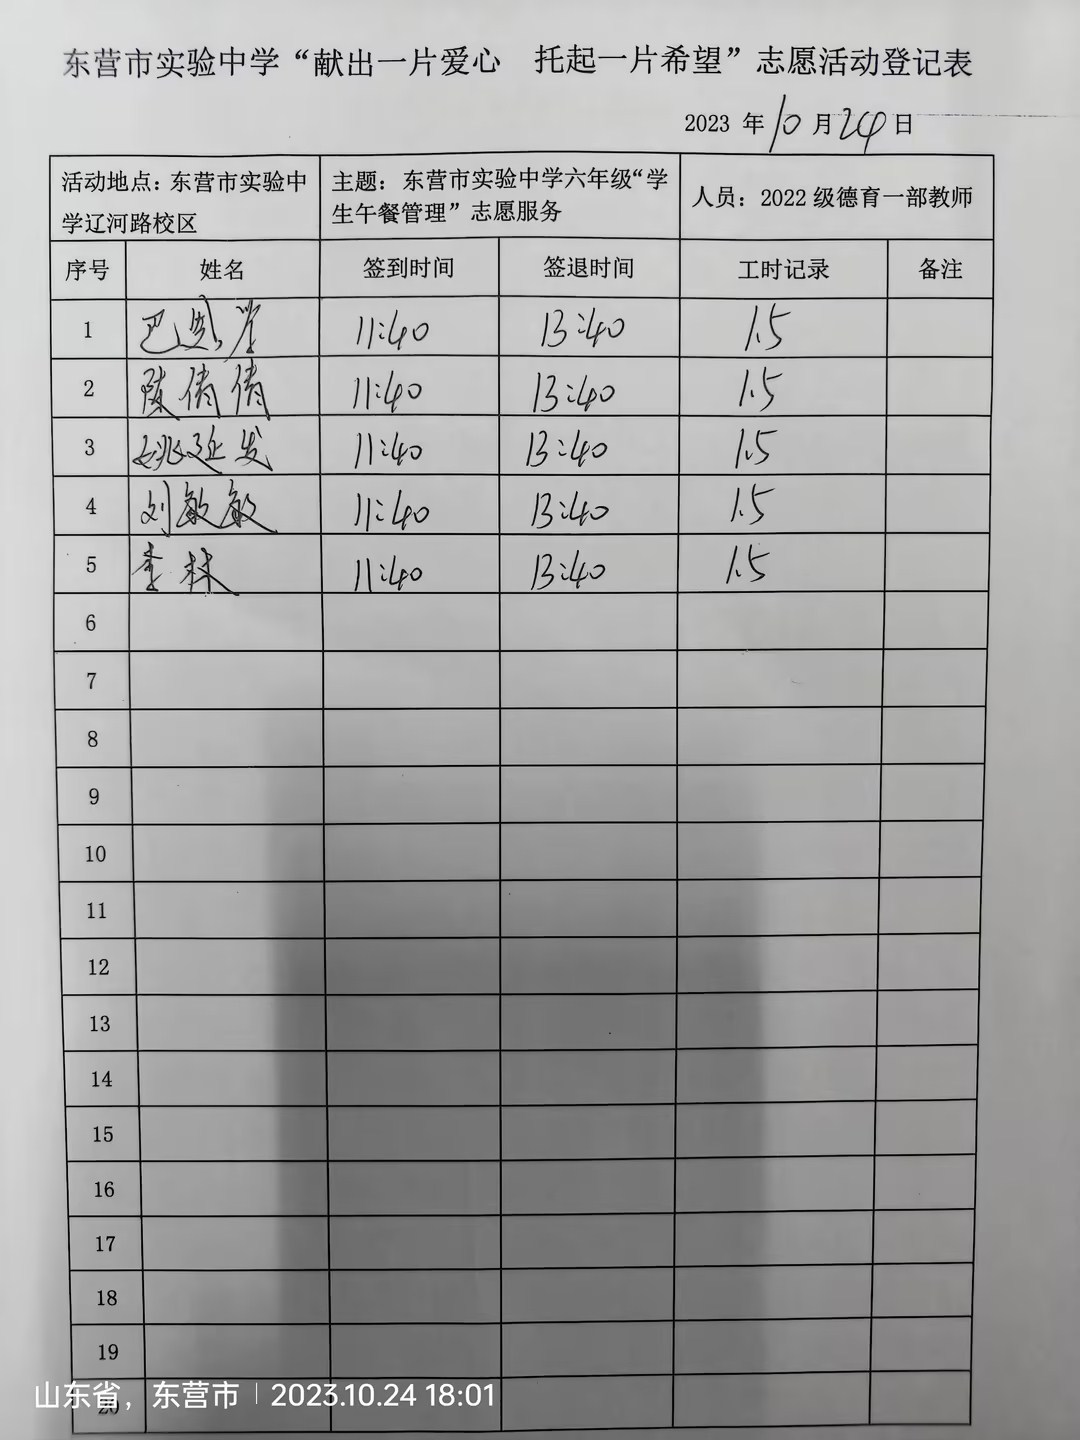 东营市实验中学“献出一片爱心 托起一片希望”志愿活动登记表
2023 年 10 月 24 日
活动地点：东营市实验中学辽河路校区 主题：东营市实验中学六年级“学生午餐管理”志愿服务 人员：2022 级德育一部教师
序号 姓名 签到时间 签退时间 工时记录 备注
1 巴 11:40 13:40 1.5
2 陈倩倩 11:40 13:40 1.5
3 姚延发 11:40 13:40 1.5
4 刘敏敏 11:40 13:40 1.5
5 李林 11:40 13:40 1.5
6
7
8
9
10
11
12
13
14
15
16
17
18
19
20
山东省，东营市 | 2023.10.24 18:01